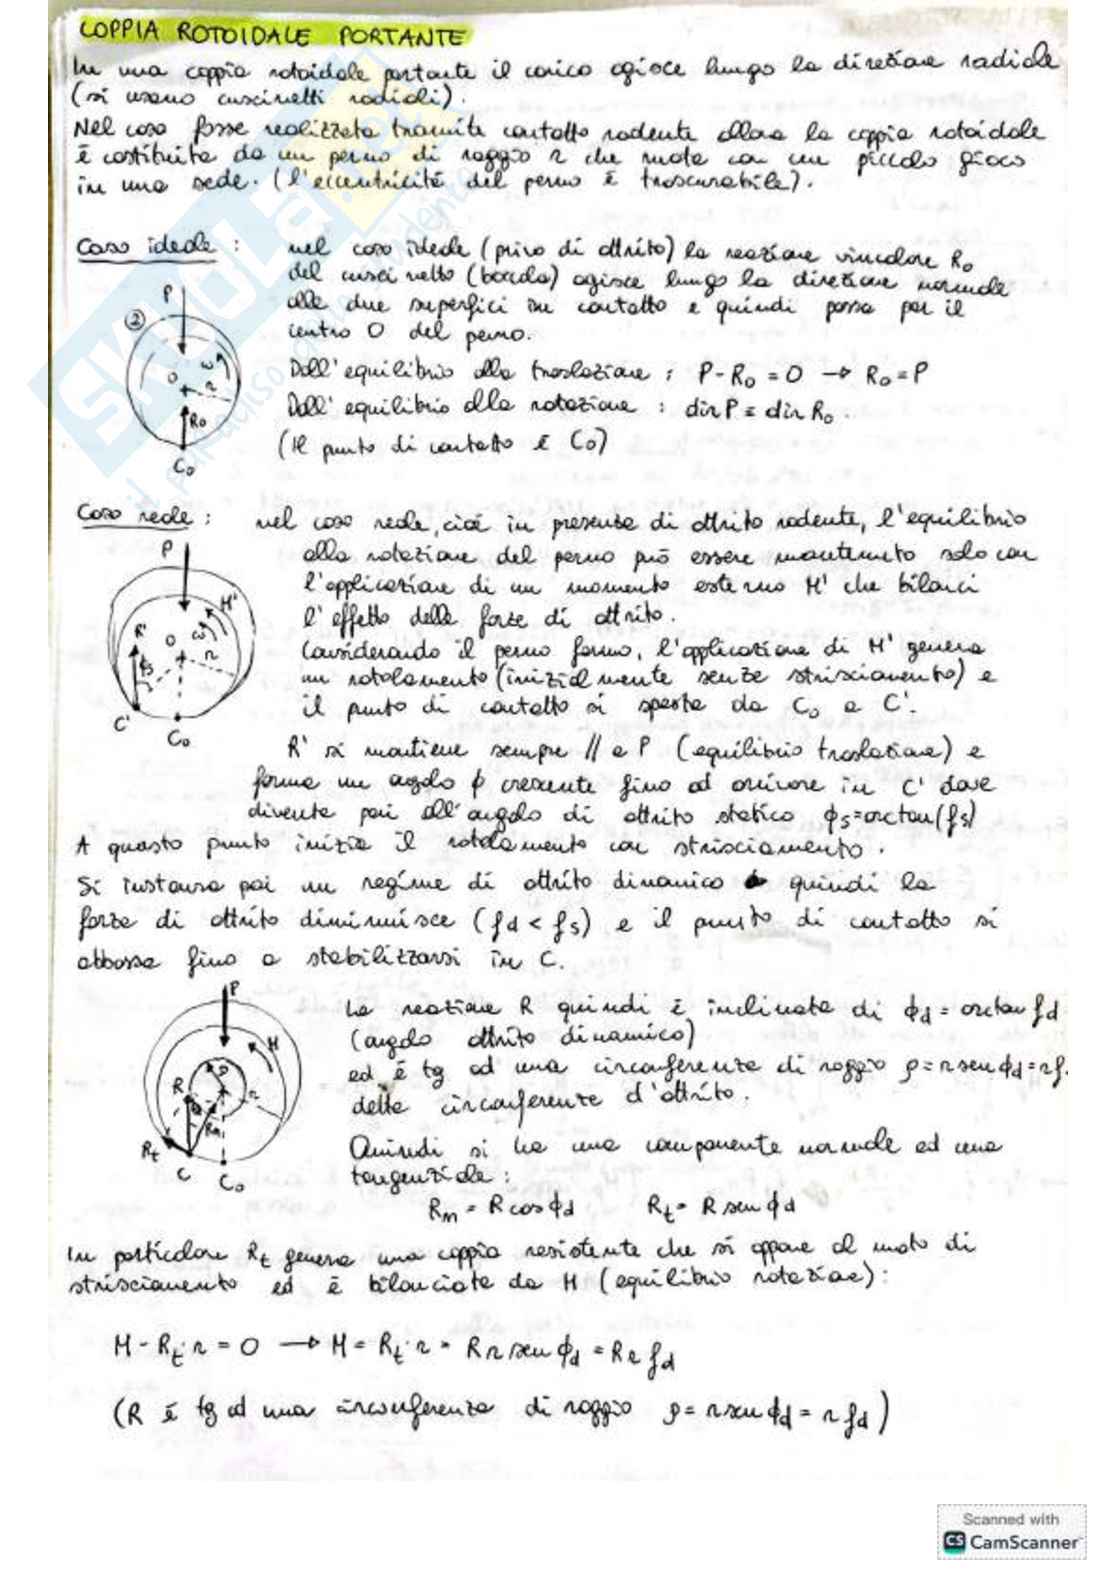 COPPIA ROTOIDALE PORTANTE
In una coppia rotoidale portante il carico agisce lungo la direzione radiale
(si usano cuscinetti radiali).
Nel caso fosse realizzata tramite contatto radente allora la coppia rotoidale
è costituita da un perno di raggio r che ruota con un piccolo gioco
in una sede. (l'eccentricità del perno è trascurabile).
Caso ideale : nel caso ideale (privo di attrito) la reazione vincolare R₀
del cuscinetto (boccola) agisce lungo la direzione normale
alle due superfici in contatto e quindi passa per il
centro O del perno.
Dall'equilibrio alla traslazione : P - R₀ = 0 → R₀ = P
Dall'equilibrio alla rotazione : dir P ≡ dir R₀ .
(Il punto di contatto è C₀)
P
②
ω
O
r
R₀
C₀
Caso reale : nel caso reale, cioè in presenza di attrito radente, l'equilibrio
alla rotazione del perno può essere mantenuto solo con
l'applicazione di un momento esterno M' che bilanci
l'effetto delle forze di attrito.
Considerando il perno fermo, l'applicazione di M' genera
un rotolamento (inizialmente senza strisciamento) e
il punto di contatto si sposta da C₀ a C'.
R' si mantiene sempre // a P (equilibrio traslazione) e
forma un angolo ϕ crescente fino ad arrivare in C' dove
diventa pari all'angolo di attrito statico ϕs=arctan(fs)
P
M'
R'
O
ω
r
ϕs
C'
C₀
A questo punto inizia il rotolamento con strisciamento .
Si instaura poi un regime di attrito dinamico quindi la
forza di attrito diminuisce (fd < fs) e il punto di contatto si
abbassa fino a stabilizzarsi in C.
La reazione R quindi è inclinata di ϕd = arctan fd
(angolo attrito dinamico)
ed è tg ad una circonferenza di raggio ρ = r sen ϕd = r f.
detta circonferenza d'attrito.
Quindi si ha una componente normale ed una
tangenziale :
Rn = R cos ϕd Rt = R sen ϕd
P
M
ρ
R
r
Rn
Rt
C
C₀
In particolare Rt genera una coppia resistente che si oppone al moto di
strisciamento ed è bilanciata da M (equilibrio rotazione) :
M - Rt · r = 0 → M = Rt · r = R r sen ϕd = R r fd
(R è tg ad una circonferenza di raggio ρ = r sen ϕd = r fd)
SKUOLA.net
Scanned with
CS CamScanner